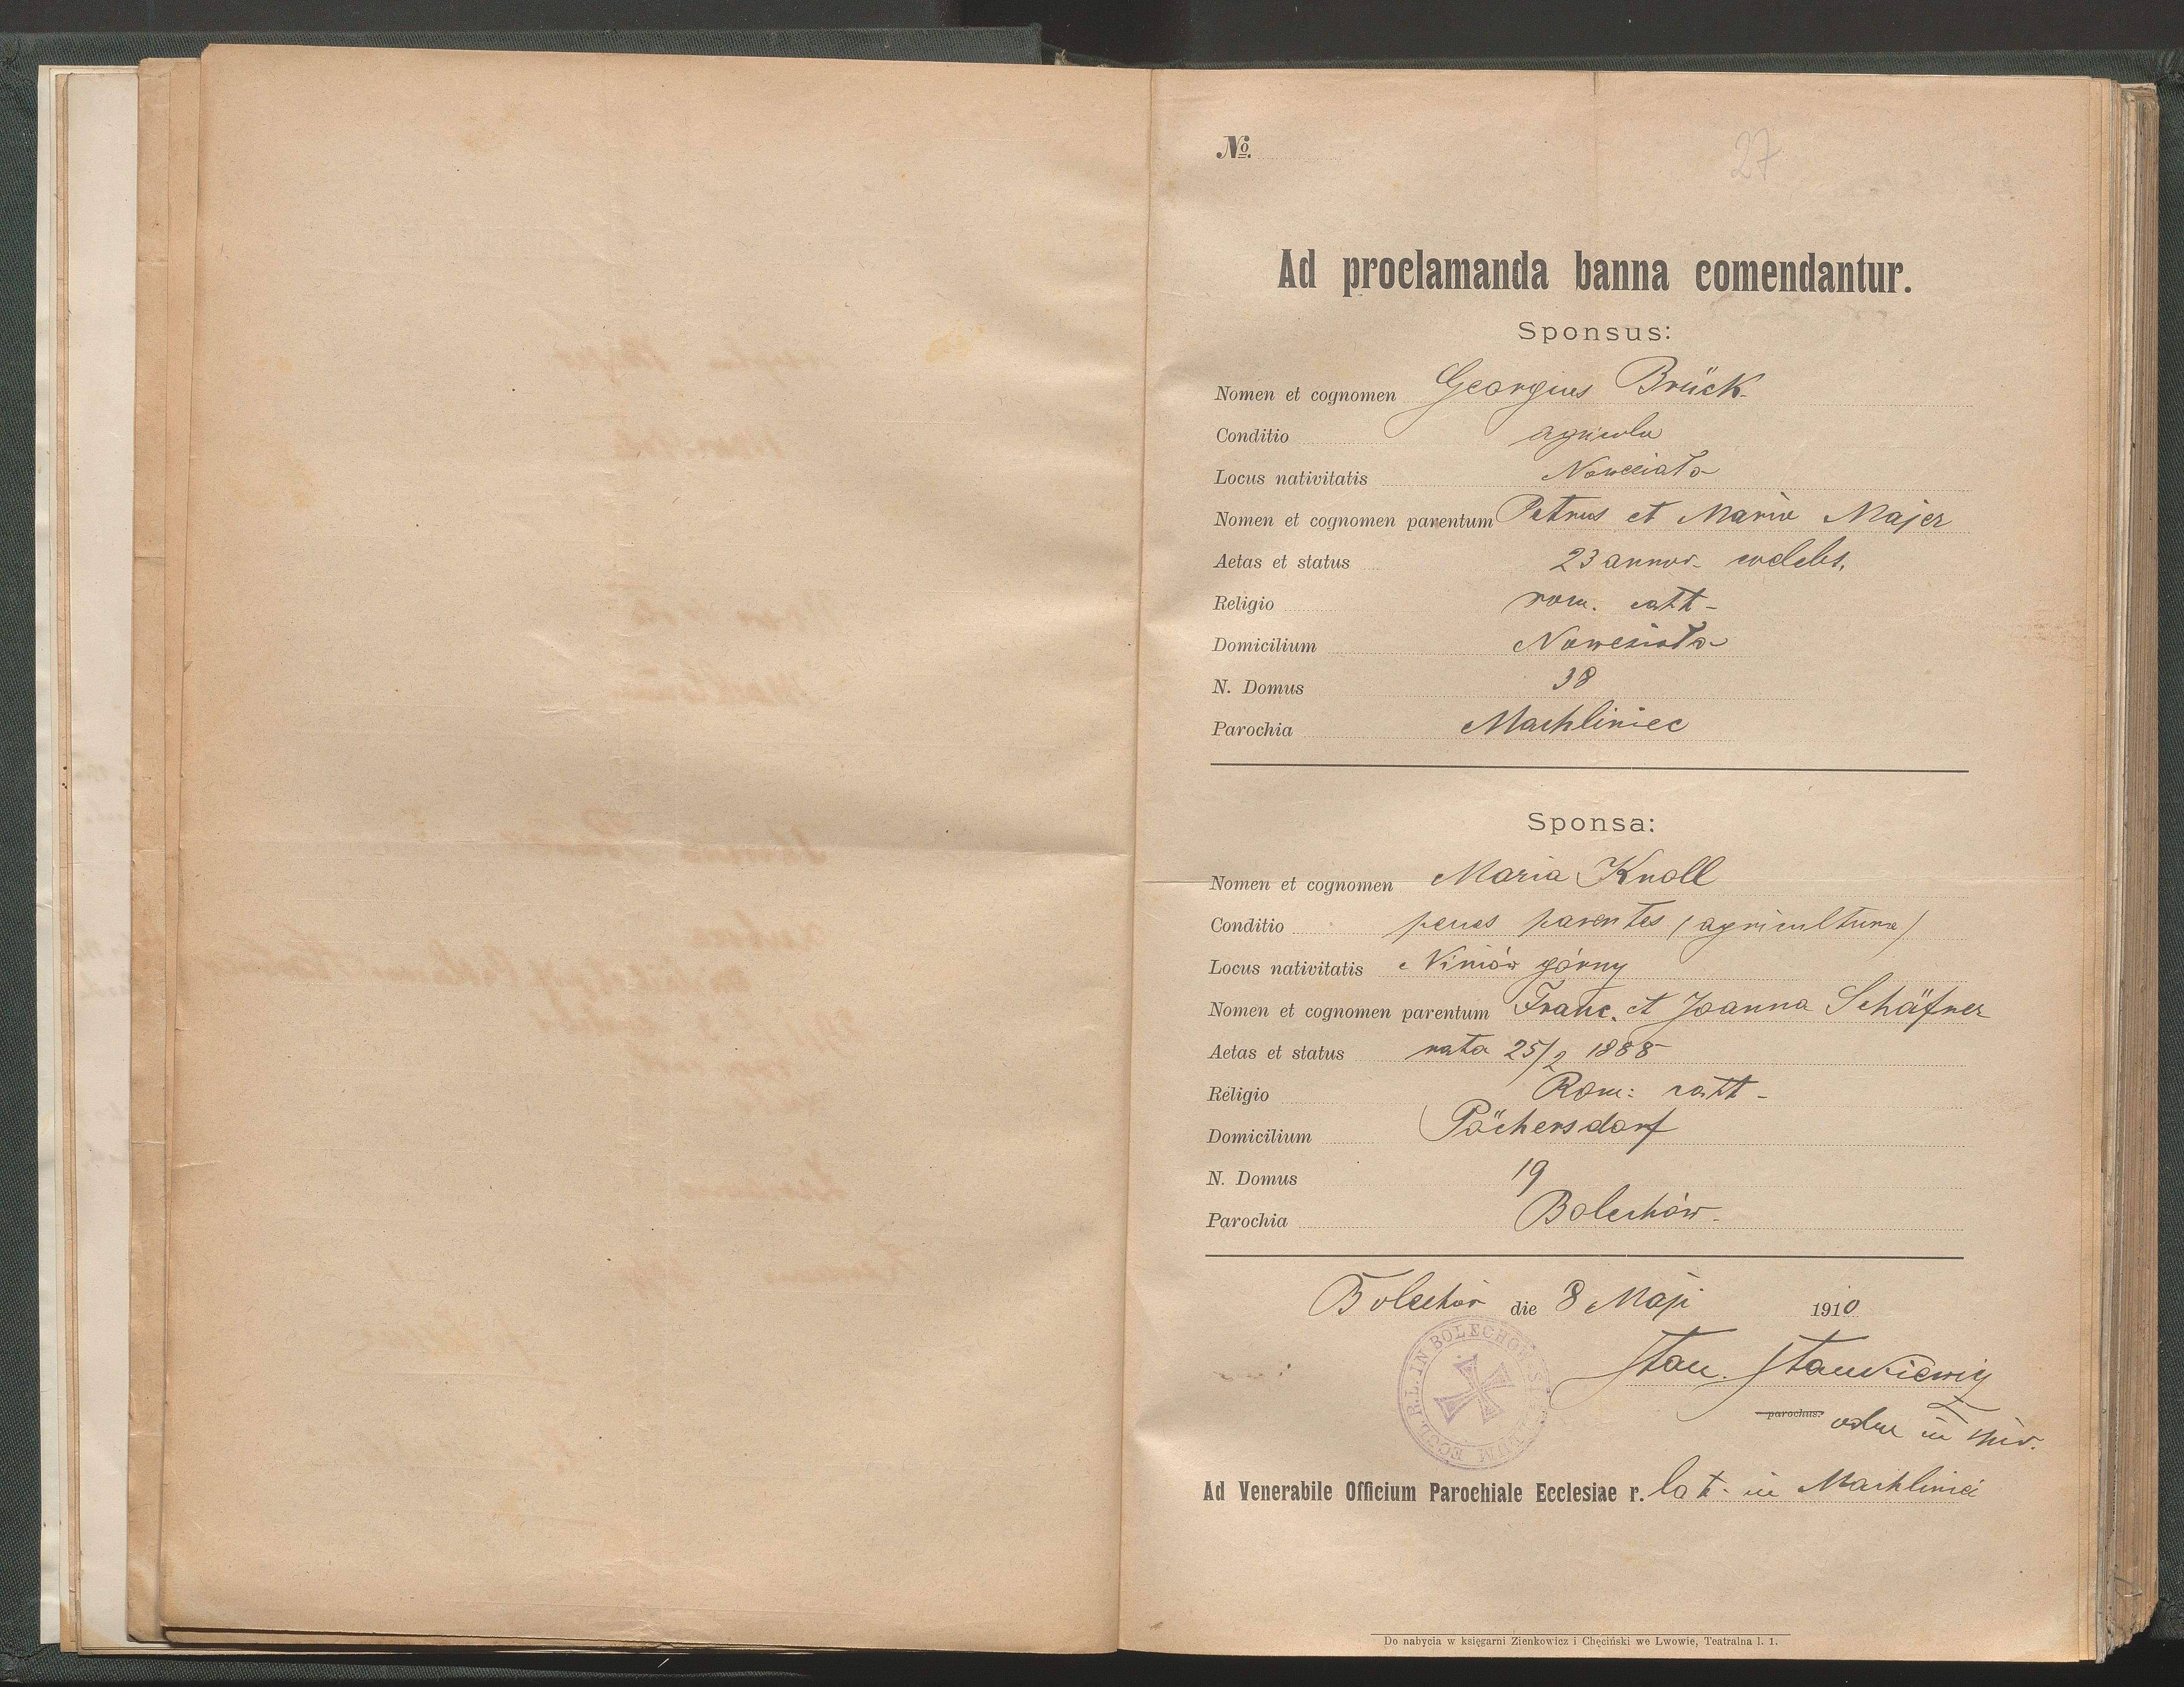 №
27
Ad proclamanda banna comendantur.
Sponsus:
Nomen et cognomen Georgius Brück
Conditio agricola
Locus nativitatis Nowesioto
Nomen et cognomen parentum Petrus et Maria Majer
Aetas et status 23 annor. coelebs.
Religio rom. catt-
Domicilium Nowesioto
N. Domus 38
Parochia Machliniec
Sponsa:
Nomen et cognomen Maria Knoll
Conditio penes parentes (agricultura)
Locus nativitatis Niniów górny
Nomen et cognomen parentum Franc. et Joanna Schäfner
Aetas et status nata 25/2 1888
Religio Rom: catt-
Domicilium Pöchersdorf
N. Domus 19
Parochia Bolechów.
Bolechów die 8 Maji 1910
Stan. Stankiewicz
parochus.
ECCL. R. L. IN BOLECHÓW SIGILLUM
Ad Venerabile Officium Parochiale Ecclesiae r. lat. in Machliniec
Do nabycia w księgarni Zienkowicz i Chęciński we Lwowie, Teatralna l. 1.